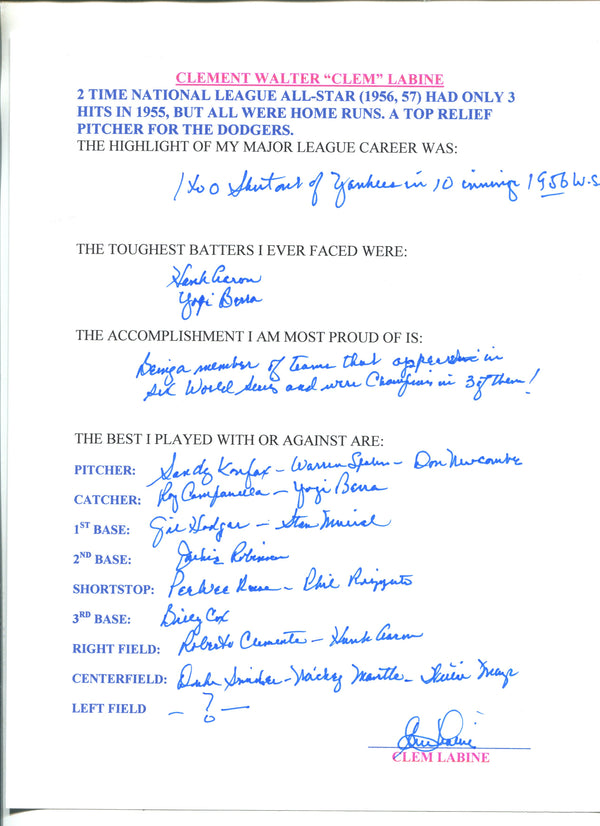 CLEMENT WALTER “CLEM” LABINE
2 TIME NATIONAL LEAGUE ALL-STAR (1956, 57) HAD ONLY 3
HITS IN 1955, BUT ALL WERE HOME RUNS. A TOP RELIEF
PITCHER FOR THE DODGERS.
THE HIGHLIGHT OF MY MAJOR LEAGUE CAREER WAS:
1 to 0 Shutout of Yankees in 10 innings 1956 W.S
THE TOUGHEST BATTERS I EVER FACED WERE:
Hank Aaron
Yogi Berra
THE ACCOMPLISHMENT I AM MOST PROUD OF IS:
Being a member of teams that appeared in
six World Series and were Champions in 3 of them!
THE BEST I PLAYED WITH OR AGAINST ARE:
PITCHER: Sandy Koufax - Warren Spahn - Don Newcombe
CATCHER: Roy Campanella - Yogi Berra
1ST BASE: Gil Hodges - Stan Musial
2ND BASE: Jackie Robinson
SHORTSTOP: PeeWee Reese - Phil Rizzuto
3RD BASE: Billy Cox
RIGHT FIELD: Roberto Clemente - Hank Aaron
CENTERFIELD: Duke Snider - Mickey Mantle - Willie Mays
LEFT FIELD - ? -
Clem Labine
CLEM LABINE